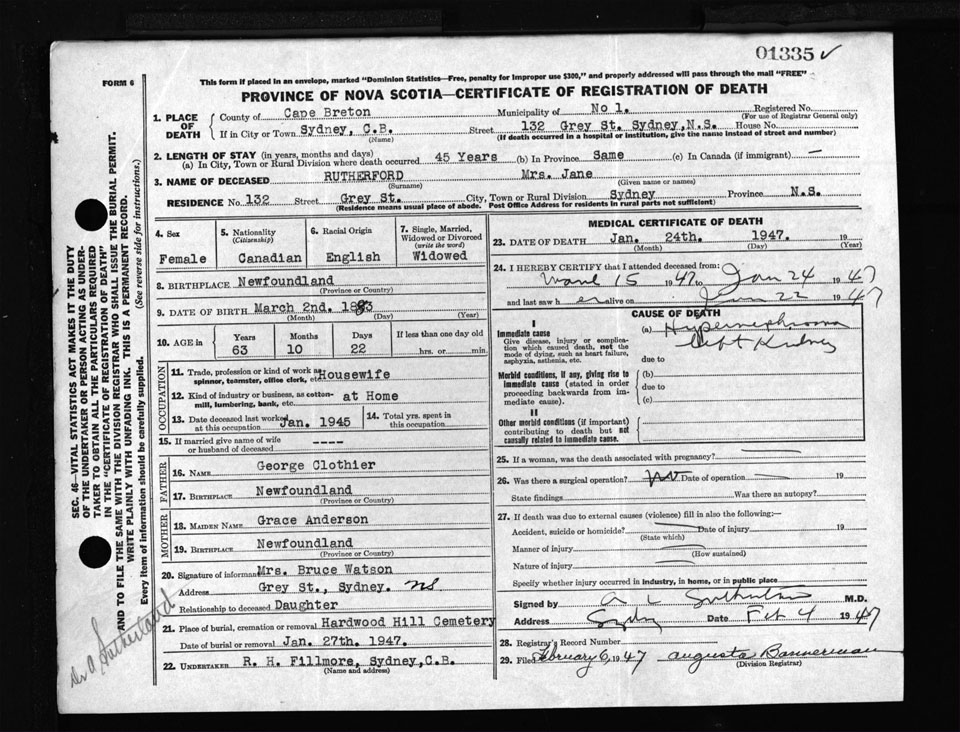 01335 ✓
FORM 6
This form if placed in an envelope, marked "Dominion Statistics—Free, penalty for improper use $300," and properly addressed will pass through the mail "FREE"
PROVINCE OF NOVA SCOTIA—CERTIFICATE OF REGISTRATION OF DEATH
1. PLACE OF DEATH
County of Cape Breton Municipality of No 1. Registered No.
(For use of Registrar General only)
If in City or Town Sydney, C.B. Street 132 Grey St. Sydney,N.S. House No.
(Name) (If death occurred in a hospital or institution, give the name instead of street and number)
2. LENGTH OF STAY (in years, months and days)
(a) In City, Town or Rural Division where death occurred 45 Years (b) In Province Same (c) In Canada (if immigrant) —
3. NAME OF DECEASED RUTHERFORD Mrs. Jane
(Surname) (Given name or names)
RESIDENCE No. 132 Street Grey St. City, Town or Rural Division Sydney Province N.S.
(Residence means usual place of abode. Post Office Address for residents in rural parts not sufficient)
4. Sex
Female
5. Nationality
(Citizenship)
Canadian
6. Racial Origin
English
7. Single, Married,
Widowed or Divorced
(write the word)
Widowed
8. BIRTHPLACE Newfoundland
(Province or Country)
9. DATE OF BIRTH March 2nd. 1883
(Month) (Day) (Year)
10. AGE in
Years Months Days If less than one day old
63 10 22 hrs. or min.
OCCUPATION
11. Trade, profession or kind of work as
spinner, teamster, office clerk, etc. Housewife
12. Kind of industry or business, as cotton-
mill, lumbering, bank, etc. at Home
13. Date deceased last worked
at this occupation Jan. 1945
14. Total yrs. spent in
this occupation
15. If married give name of wife
or husband of deceased ----
FATHER
16. NAME George Clothier
17. BIRTHPLACE Newfoundland
(Province or Country)
MOTHER
18. MAIDEN NAME Grace Anderson
19. BIRTHPLACE Newfoundland
(Province or Country)
20. Signature of informant Mrs. Bruce Watson
Address Grey St., Sydney. NS
Relationship to deceased Daughter
21. Place of burial, cremation or removal Hardwood Hill Cemetery
Date of burial or removal Jan. 27th. 1947.
22. UNDERTAKER R. H. Fillmore, Sydney,C.B.
(Name and address)
MEDICAL CERTIFICATE OF DEATH
23. DATE OF DEATH Jan. 24th. 1947. 19
(Month) (Day) (Year)
24. I HEREBY CERTIFY that I attended deceased from:
15 1947 to Jan 24 1947
and last saw her alive on Jan 22 1947
CAUSE OF DEATH
I
Immediate cause
Give disease, injury or complica-
tion which caused death, not the
mode of dying, such as heart failure,
asphyxia, asthenia, etc.
(a) Hypernephroma
Left Kidney
due to
Morbid conditions, if any, giving rise to
immediate cause (stated in order
proceeding backwards from im-
mediate cause).
(b)
due to
(c)
II
Other morbid conditions (if important)
contributing to death but not
causally related to immediate cause.
25. If a woman, was the death associated with pregnancy? —
26. Was there a surgical operation? no Date of operation 19
State findings Was there an autopsy?
27. If death was due to external causes (violence) fill in also the following:—
Accident, suicide or homicide? Date of injury 19
(State which)
Manner of injury
(How sustained)
Nature of injury
Specify whether injury occurred in industry, in home, or in public place
Signed by A L Sutherland M.D.
Address Sydney Date Feb 4 1947
28. Registrar's Record Number
29. Filed February 6, 1947 Augusta Bannerman
(Division Registrar)
SEC. 46—VITAL STATISTICS ACT MAKES IT THE DUTY
OF THE UNDERTAKER OR PERSON ACTING AS UNDER-
TAKER TO OBTAIN ALL THE PARTICULARS REQUIRED
IN THE "CERTIFICATE OF REGISTRATION OF DEATH"
AND TO FILE THE SAME WITH THE DIVISION REGISTRAR WHO SHALL ISSUE THE BURIAL PERMIT.
WRITE PLAINLY WITH UNFADING INK. THIS IS A PERMANENT RECORD.
Every item of information should be carefully supplied. (See reverse side for instructions.)
Dr A Sutherland